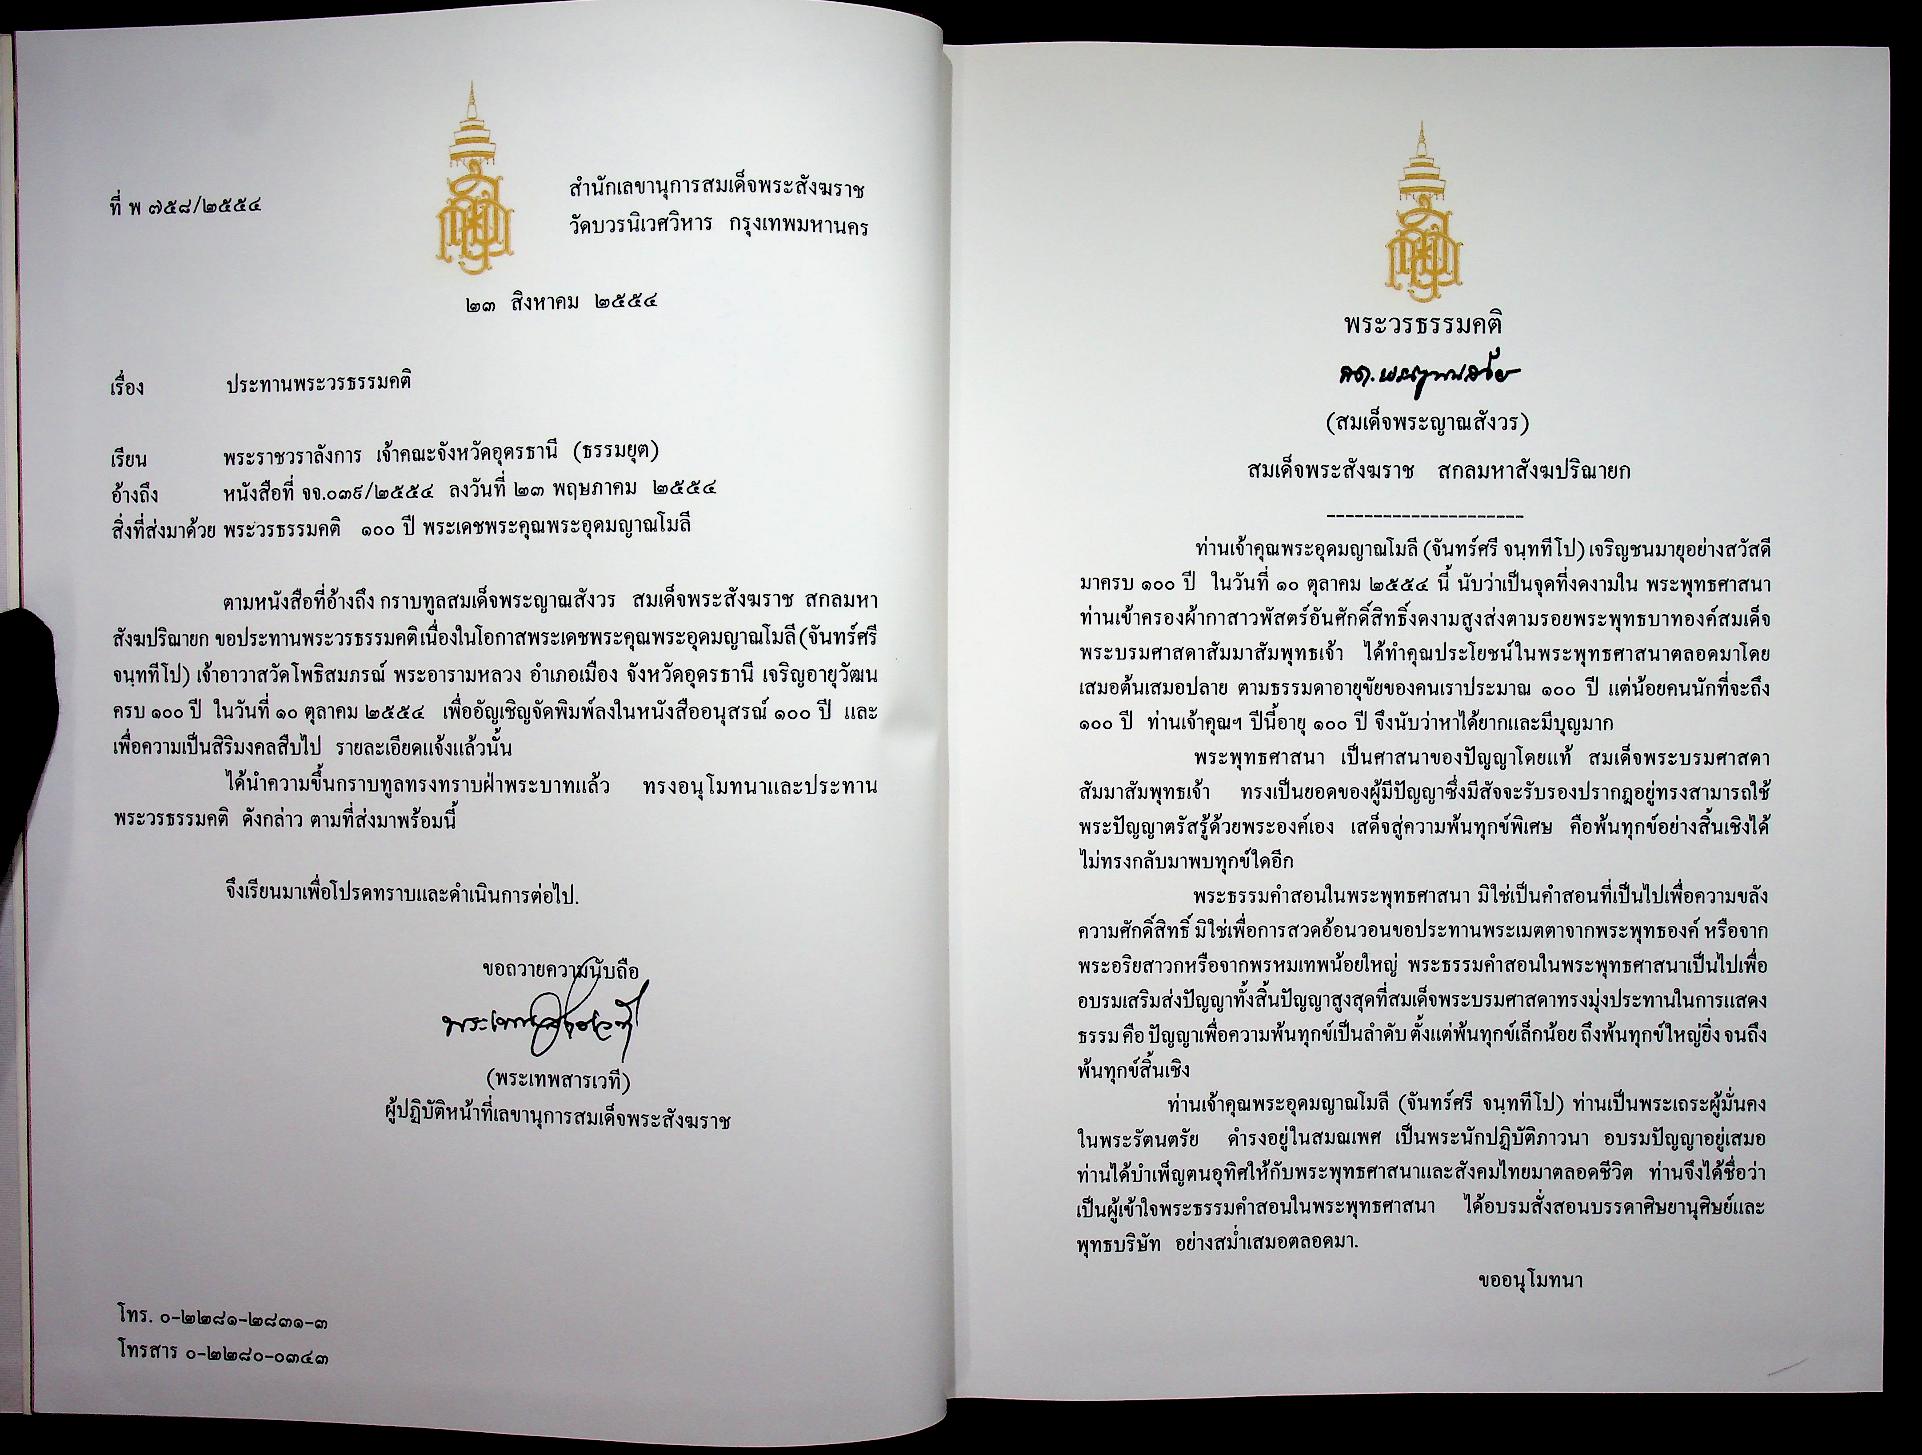 ที่ พ ๗๕๘/๒๕๕๔
สำนักเลขานุการสมเด็จพระสังฆราช
วัดบวรนิเวศวิหาร กรุงเทพมหานคร
๒๓ สิงหาคม ๒๕๕๔
เรื่อง ประทานพระวรธรรมคติ
เรียน พระราชวราลังการ เจ้าคณะจังหวัดอุดรธานี (ธรรมยุต)
อ้างถึง หนังสือที่ จจ.๐๓๙/๒๕๕๔ ลงวันที่ ๒๓ พฤษภาคม ๒๕๕๔
สิ่งที่ส่งมาด้วย พระวรธรรมคติ ๑๐๐ ปี พระเดชพระคุณพระอุดมญาณโมลี
ตามหนังสือที่อ้างถึง กราบทูลสมเด็จพระญาณสังวร สมเด็จพระสังฆราช สกลมหา
สังฆปริณายก ขอประทานพระวรธรรมคติเนื่องในโอกาสพระเดชพระคุณพระอุดมญาณโมลี(จันทร์ศรี
จนฺททีโป) เจ้าอาวาสวัดโพธิสมภรณ์ พระอารามหลวง อำเภอเมือง จังหวัดอุดรธานี เจริญอายุวัฒน
ครบ ๑๐๐ ปี ในวันที่ ๑๐ ตุลาคม ๒๕๕๔ เพื่ออัญเชิญจัดพิมพ์ลงในหนังสืออนุสรณ์ ๑๐๐ ปี และ
เพื่อความเป็นสิริมงคลสืบไป รายละเอียดแจ้งแล้วนั้น
ได้นำความขึ้นกราบทูลทรงทราบฝ่าพระบาทแล้ว ทรงอนุโมทนาและประทาน
พระวรธรรมคติ ดังกล่าว ตามที่ส่งมาพร้อมนี้
จึงเรียนมาเพื่อโปรดทราบและดำเนินการต่อไป.
ขอถวายความนับถือ
พระเทพสารเวที
(พระเทพสารเวที)
ผู้ปฏิบัติหน้าที่เลขานุการสมเด็จพระสังฆราช
โทร. ๐-๒๒๘๑-๒๘๓๑-๓
โทรสาร ๐-๒๒๘๐-๐๓๔๓
พระวรธรรมคติ
(สมเด็จพระญาณสังวร)
สมเด็จพระสังฆราช สกลมหาสังฆปริณายก
ท่านเจ้าคุณพระอุดมญาณโมลี (จันทร์ศรี จนฺททีโป) เจริญชนมายุอย่างสวัสดี
มาครบ ๑๐๐ ปี ในวันที่ ๑๐ ตุลาคม ๒๕๕๔ นี้ นับว่าเป็นจุดที่งดงามใน พระพุทธศาสนา
ท่านเข้าครองผ้ากาสาวพัสตร์อันศักดิ์สิทธิ์งดงามสูงส่งตามรอยพระพุทธบาทองค์สมเด็จ
พระบรมศาสดาสัมมาสัมพุทธเจ้า ได้ทำคุณประโยชน์ในพระพุทธศาสนาตลอดมาโดย
เสมอต้นเสมอปลาย ตามธรรมดาอายุขัยของคนเราประมาณ ๑๐๐ ปี แต่น้อยคนนักที่จะถึง
๑๐๐ ปี ท่านเจ้าคุณฯ ปีนี้อายุ ๑๐๐ ปี จึงนับว่าหาได้ยากและมีบุญมาก
พระพุทธศาสนา เป็นศาสนาของปัญญาโดยแท้ สมเด็จพระบรมศาสดา
สัมมาสัมพุทธเจ้า ทรงเป็นยอดของผู้มีปัญญาซึ่งมีสัจจะรับรองปรากฏอยู่ทรงสามารถใช้
พระปัญญาตรัสรู้ด้วยพระองค์เอง เสด็จสู่ความพ้นทุกข์พิเศษ คือพ้นทุกข์อย่างสิ้นเชิงได้
ไม่ทรงกลับมาพบทุกข์ใดอีก
พระธรรมคำสอนในพระพุทธศาสนา มิใช่เป็นคำสอนที่เป็นไปเพื่อความขลัง
ความศักดิ์สิทธิ์ มิใช่เพื่อการสวดอ้อนวอนขอประทานพระเมตตาจากพระพุทธองค์ หรือจาก
พระอริยสาวกหรือจากพรหมเทพน้อยใหญ่ พระธรรมคำสอนในพระพุทธศาสนาเป็นไปเพื่อ
อบรมเสริมส่งปัญญาทั้งสิ้นปัญญาสูงสุดที่สมเด็จพระบรมศาสดาทรงมุ่งประทานในการแสดง
ธรรม คือ ปัญญาเพื่อความพ้นทุกข์เป็นลำดับ ตั้งแต่พ้นทุกข์เล็กน้อย ถึงพ้นทุกข์ใหญ่ยิ่ง จนถึง
พ้นทุกข์สิ้นเชิง
ท่านเจ้าคุณพระอุดมญาณโมลี (จันทร์ศรี จนฺททีโป) ท่านเป็นพระเถระผู้มั่นคง
ในพระรัตนตรัย ดำรงอยู่ในสมณเพศ เป็นพระนักปฏิบัติภาวนา อบรมปัญญาอยู่เสมอ
ท่านได้บำเพ็ญตนอุทิศให้กับพระพุทธศาสนาและสังคมไทยมาตลอดชีวิต ท่านจึงได้ชื่อว่า
เป็นผู้เข้าใจพระธรรมคำสอนในพระพุทธศาสนา ได้อบรมสั่งสอนบรรดาศิษยานุศิษย์และ
พุทธบริษัท อย่างสม่ำเสมอตลอดมา.
ขออนุโมทนา